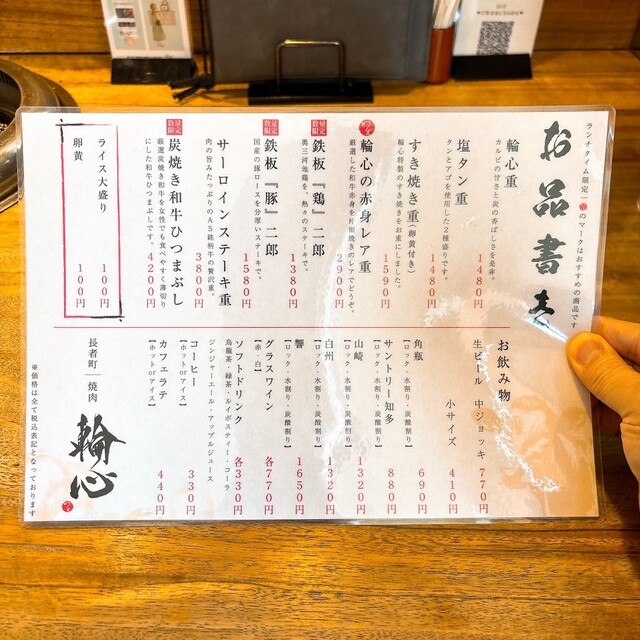 お品書き
ランチタイム限定
のマークはおすすめの商品です
輪心重
カルビの甘さと炭の香ばしさを是非。
1480円
塩タン重
タンとアゴを使用した2種盛りです。
1480円
すき焼き重(卵黄付き)
輪心特製のすき焼きをお重にしました。
1590円
輪心の赤身レア重
厳選した和牛赤身を片面焼きのレアでどうぞ。
2900円
数量限定
鉄板『鶏』二郎
奥三河地鶏を、熱々のステーキで。
1380円
数量限定
鉄板『豚』二郎
国産の豚ロースを分厚いステーキで。
1580円
サーロインステーキ重
肉の旨みたっぷりのA5銘柄牛の贅沢重。
3800円
数量限定
炭焼き和牛ひつまぶし
厳選炭焼き和牛を女性でも食べやすく薄切り
にした和牛ひつまぶしです。
4200円
ライス大盛り
100円
卵黄
100円
お飲み物
生ビール 中ジョッキ 770円
小サイズ 410円
角瓶 690円
【ロック・水割り・炭酸割り】
サントリー知多 880円
【ロック・水割り・炭酸割り】
山崎 1320円
【ロック・水割り・炭酸割り】
白州 1320円
【ロック・水割り・炭酸割り】
響 1650円
【ロック・水割り・炭酸割り】
グラスワイン 各770円
【赤・白】
ソフトドリンク 各330円
烏龍茶・緑茶・ルイボスティー・コーラ
ジンジャーエール・アップルジュース
コーヒー 330円
【ホットorアイス】
カフェラテ 440円
【ホットorアイス】
長者町 焼肉
輪心
※価格は全て税込表記となっております